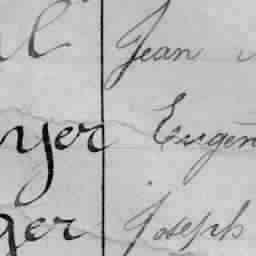 l Jean
yer Eugèn
ger Joseph